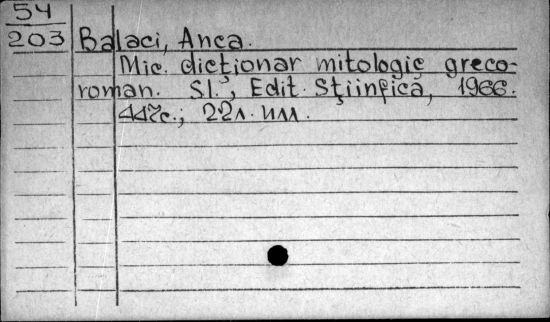 54
203 Balaci, Anca.
Mic. dicţionar mitologic greco-
roman. Sl., Edit. Ştiinfică, 1966.
447c.; 22л. илл.